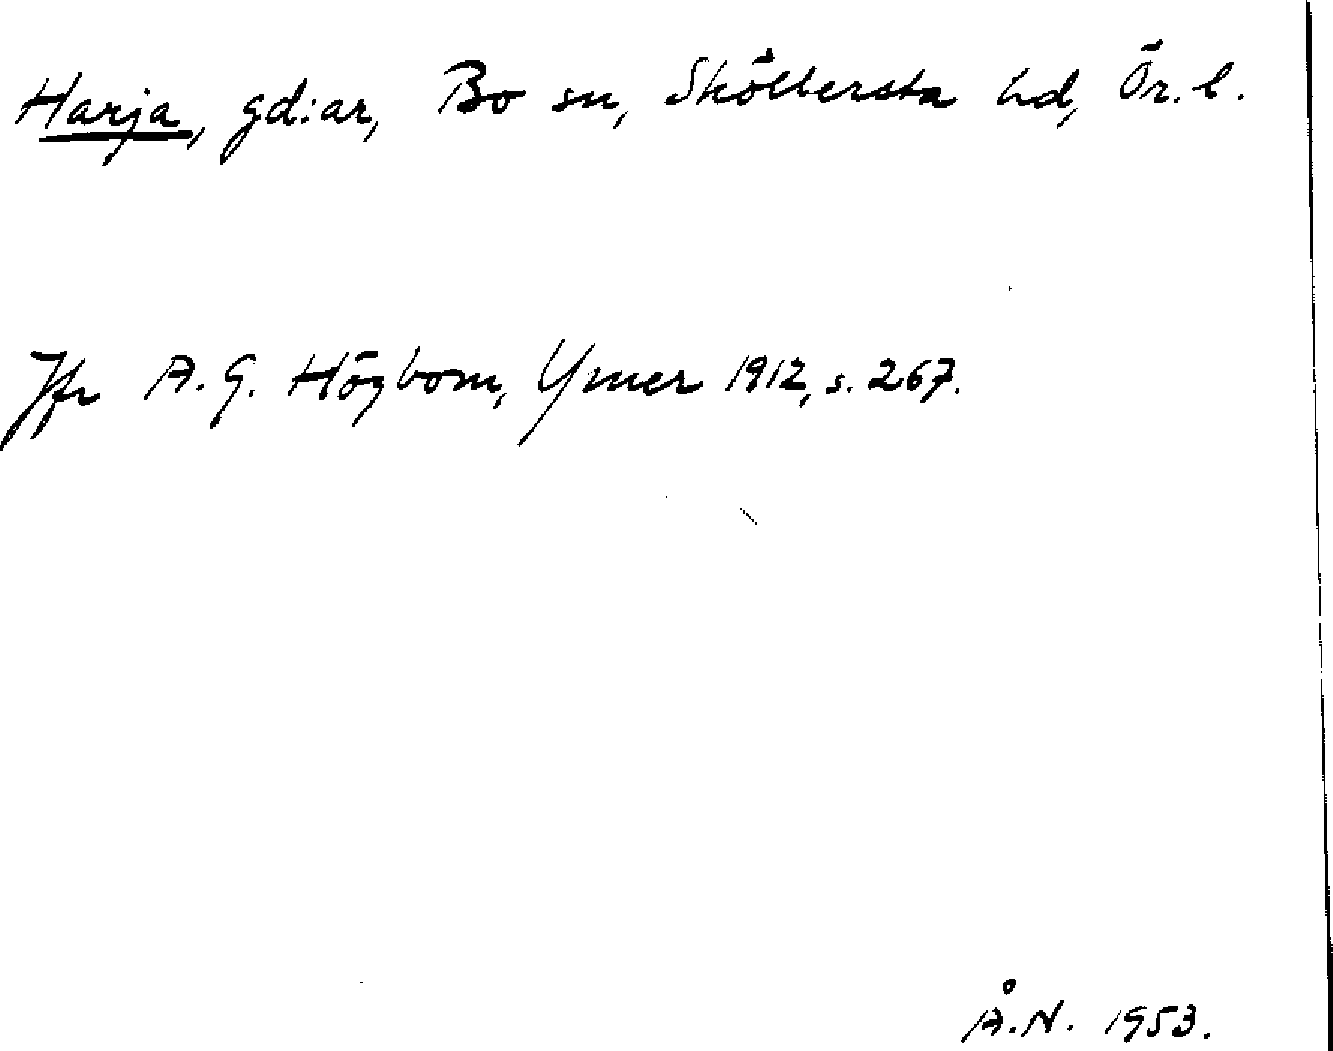 Harja, gd:ar, Bo sn, Sköllersta hd, Ör. l.
Jfr A. G. Högbom, Ymer 1912, s. 267.
Å. N. 1953.